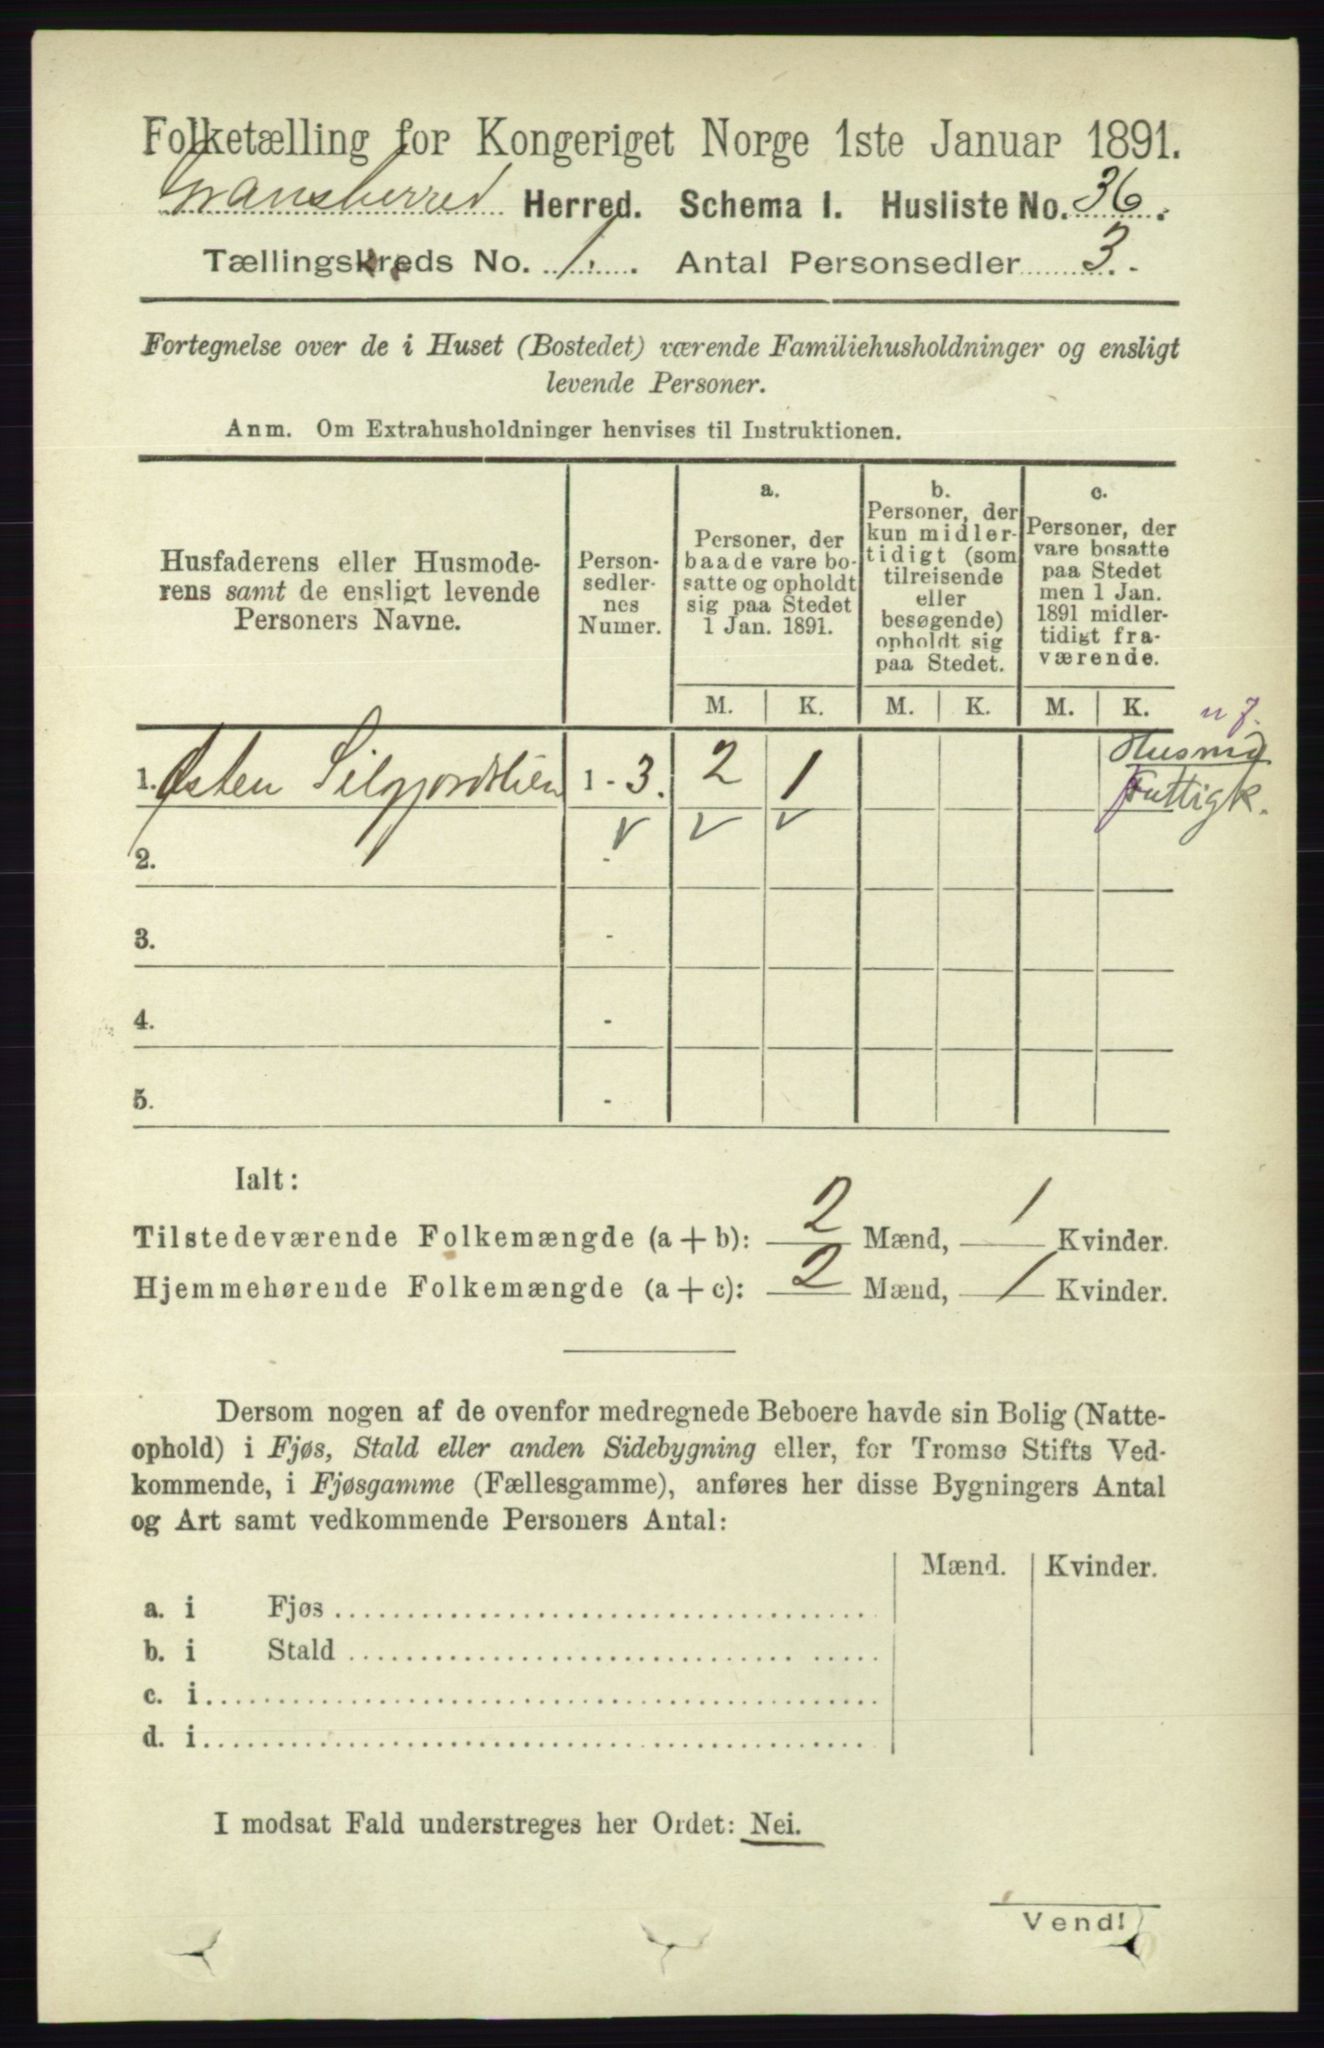 Folketælling for Kongeriget Norge 1ste Januar 1891.
Gransherred Herred. Schema I. Husliste No. 36.
Tællingskreds No. 1. Antal Personsedler 3.
Fortegnelse over de i Huset (Bostedet) værende Familiehusholdninger og ensligt
levende Personer.
Anm. Om Extrahusholdninger henvises til Instruktionen.
Husfaderens eller Husmode-
rens samt de ensligt levende
Personers Navne.
Person-
sedler-
nes
Numer.
a.
Personer, der
baade vare bo-
satte og opholdt
sig paa Stedet
1 Jan. 1891.
b.
Personer, der
kun midler-
tidigt (som
tilreisende
eller
besøgende)
opholdt sig
paa Stedet.
c.
Personer, der
vare bosatte
paa Stedet
men 1 Jan.
1891 midler-
tidigt fra-
værende.
M. K. M. K. M. K.
1. Østen Silgjordslien 1 - 3. 2 1
Fattigk.
2. -
3. -
4. -
5. -
Ialt:
Tilstedeværende Folkemængde (a + b): 2 Mænd, 1 Kvinder.
Hjemmehørende Folkemængde (a + c): 2 Mænd, 1 Kvinder.
Dersom nogen af de ovenfor medregnede Beboere havde sin Bolig (Natte-
ophold) i Fjøs, Stald eller anden Sidebygning eller, for Tromsø Stifts Ved-
kommende, i Fjøsgamme (Fællesgamme), anføres her disse Bygningers Antal
og Art samt vedkommende Personers Antal:
Mænd. Kvinder.
a. i Fjøs
b. i Stald
c. i
d. i
I modsat Fald understreges her Ordet: Nei.
Vend!